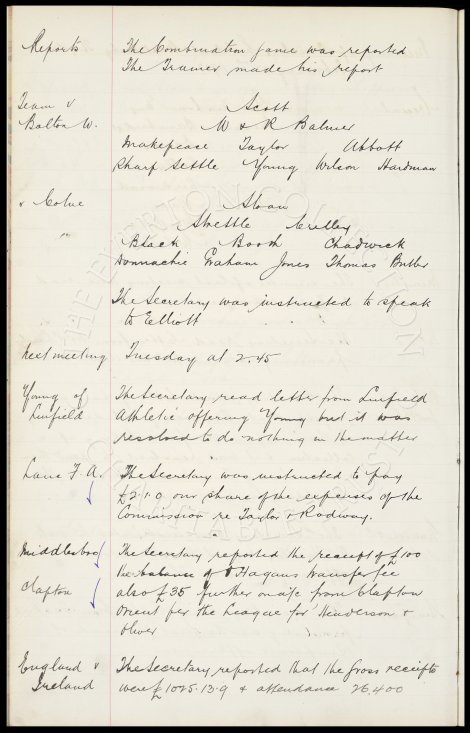 Reports The Combination game was reported
The Trainer made his report
Team v Scott
Bolton W. W & R Balmer
Makepeace Taylor Abbott
Sharp Settle Young Wilson Hardman
v Colne Sloan
Strettle Crelley
Black Booth Chadwick
Donnachie Graham Jones Thomas Butler
The Secretary was instructed to speak
to Elliott
Next meeting Tuesday at 2.45
Young of The Secretary read letter from Linfield
Linfield Athletic offering Young but it was
resolved to do nothing in the matter
Lanc F. A. The Secretary was instructed to pay
£2.1.0 our share of the expenses of the
Commission re Taylor & Rodway.
Middlesbro The Secretary reported the receipt of £100
the balance of O'Hagans transfer fee
Clapton also £35 further on a/c from Clapton
Orient per the League for Henderson &
Oliver
England v The Secretary reported that the Gross receipts
Ireland were £1025.13.9 & attendance 26,400